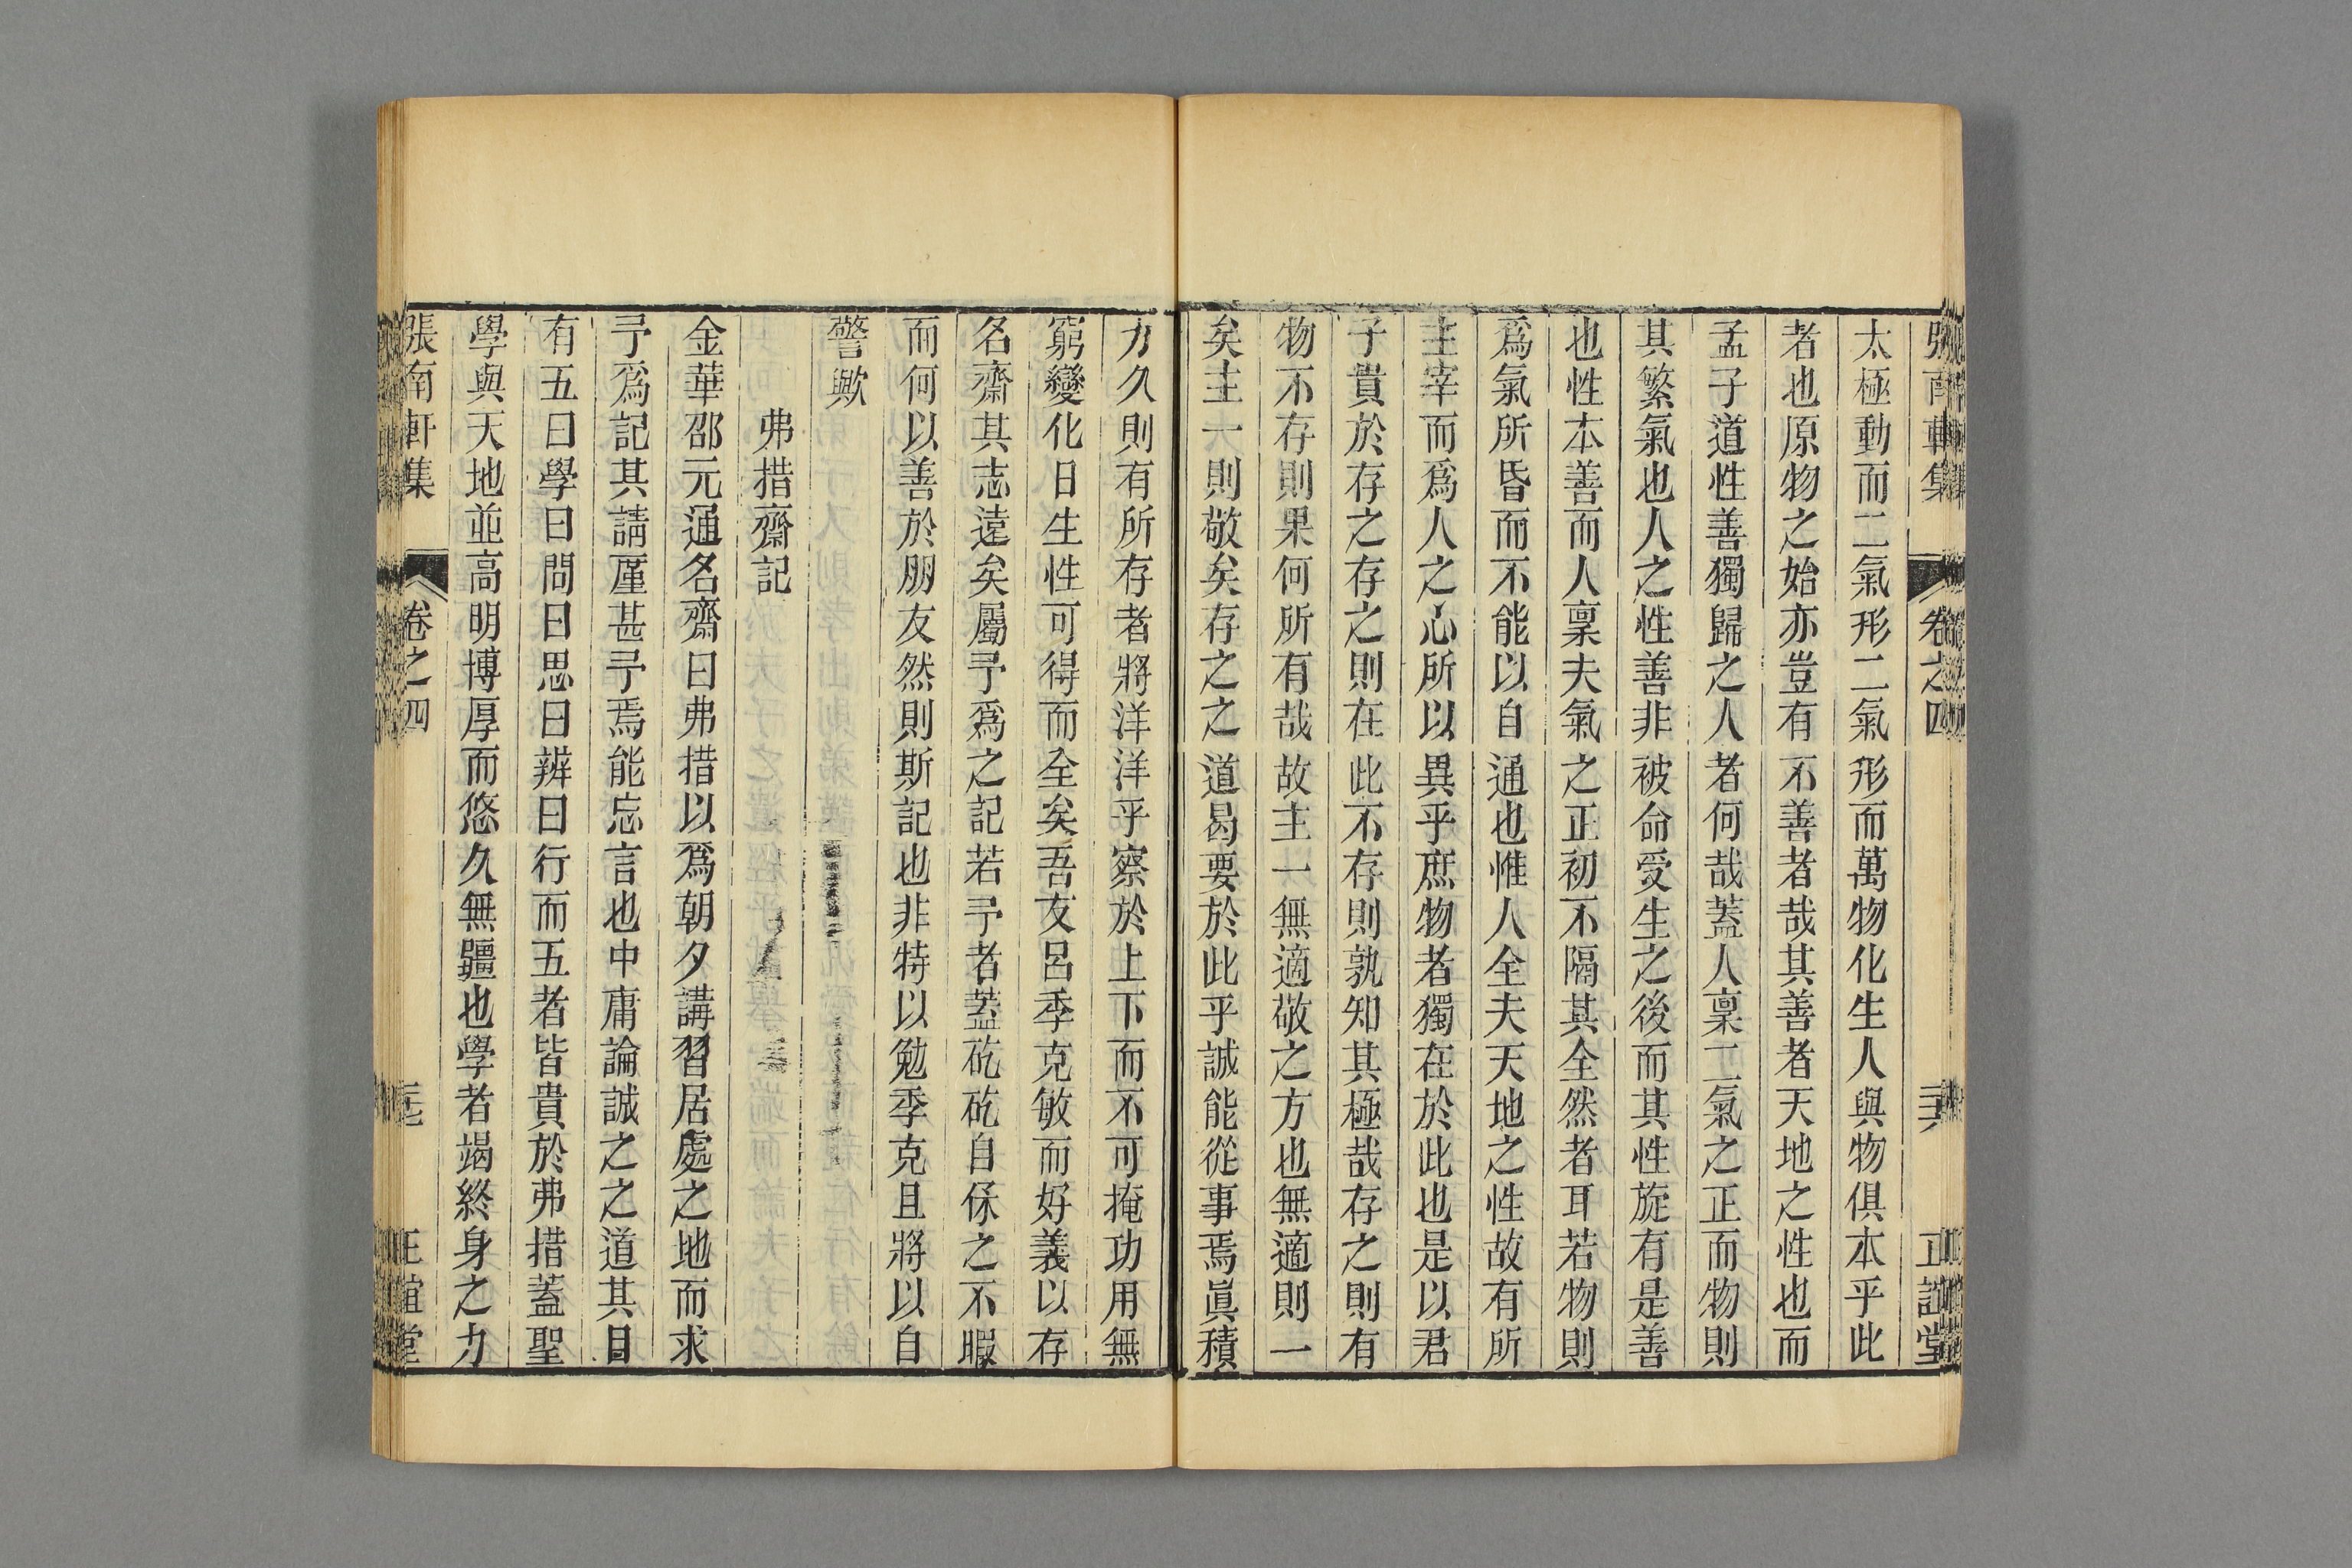 張南軒集 卷之四 三六 正誼堂
太極動而二氣形二氣形而萬物化生人與物俱本乎此
者也原物之始亦豈有不善者哉其善者天地之性也而
孟子道性善獨歸之人者何哉蓋人稟二氣之正而物則
其繁氣也人之性善非被命受生之後而其性旋有是善
也性本善而人稟夫氣之正初不隔其全然者耳若物則
爲氣所昏而不能以自通也惟人全夫天地之性故有所
主宰而爲人之心所以異乎庶物者獨在於此也是以君
子貴於存之存之則在此不存則孰知其極哉存之則有
物不存則果何所有哉故主一無適敬之方也無適則一
矣主一則敬矣存之之道曷要於此乎誠能從事焉眞積
力久則有所存者將洋洋乎察於上下而不可掩功用無
窮變化日生性可得而全矣吾友呂季克敏而好義以存
名齋其志遠矣屬予爲之記若予者蓋矻矻自保之不暇
而何以善於朋友然則斯記也非特以勉季克且將以自
警歟
弗措齋記
金華邵元通名齋曰弗措以爲朝夕講習居處之地而求
予爲記其請厪甚予焉能忘言也中庸論誠之之道其目
有五曰學曰問曰思曰辨曰行而五者皆貴於弗措蓋聖
學與天地並高明博厚而悠久無疆也學者竭終身之力
張南軒集 卷之四 三七 正誼堂